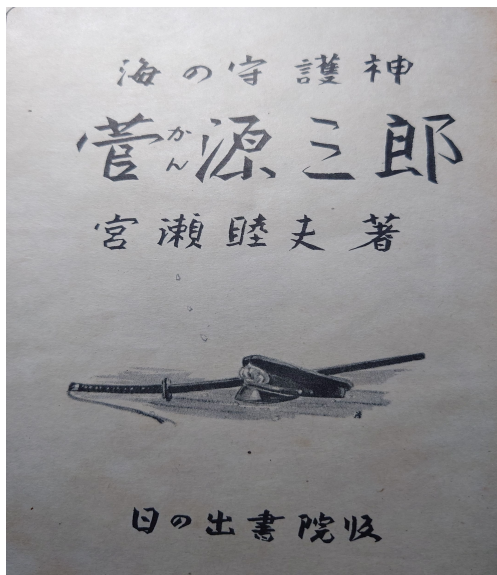 海の守護神
菅かん源三郎
宮瀬睦夫著
日の出書院版